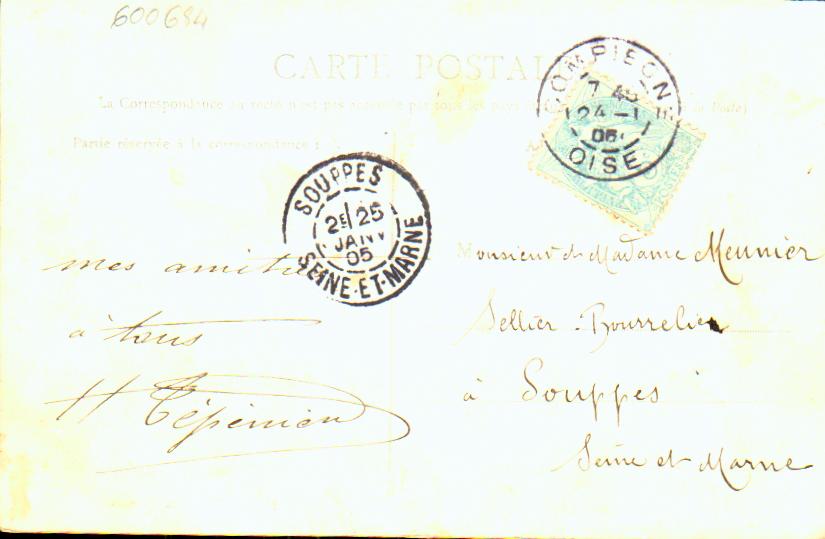 600684
CARTE POSTALE
La Correspondance au recto n'est pas acceptée par tous les pays
Partie réservée à la correspondance
COMPIEGNE
7 45
24 - 1
05
OISE
SOUPPES
2E 25
JANV
05
SEINE-ET-MARNE
mes amitiés
à tous
Monsieur et Madame Meunier
Sellier - Bourrelier
à Souppes
Seine et Marne